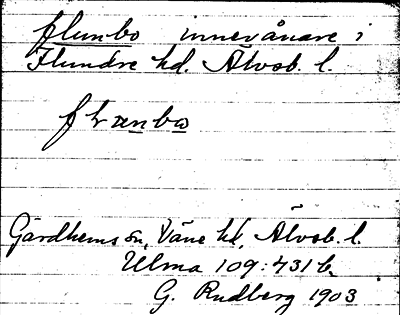 flunbo innevånare i
Flundre hd. Älvsb. l.
Gärdhems sn, Väne hd, Älvsb. l.
Ulma 109:431 b
G. Rudberg 1903